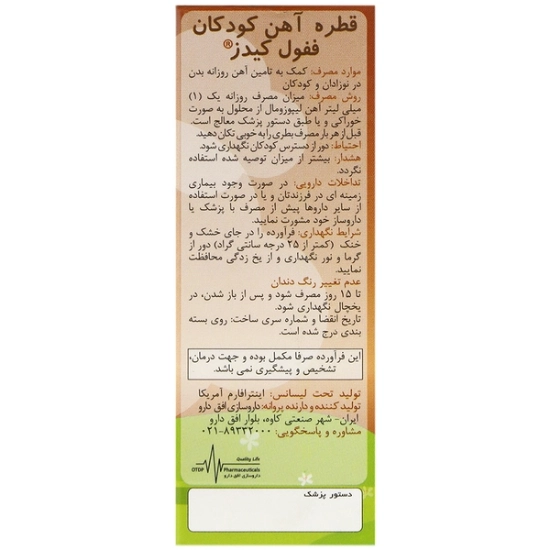 قطره آهن کودکان
ففول کیدز®
موارد مصرف: کمک به تامین آهن روزانه بدن
در نوزادان و کودکان
روش مصرف: میزان مصرف روزانه یک (۱)
میلی لیتر آهن لیپوزومال از محلول به صورت
خوراکی و یا طبق دستور پزشک معالج است.
قبل از هر بار مصرف بطری را به خوبی تکان دهید.
احتیاط: دور از دسترس کودکان نگهداری شود.
هشدار: بیشتر از میزان توصیه شده استفاده
نگردد.
تداخلات دارویی: در صورت وجود بیماری
زمینه ای در فرزندتان و یا در صورت استفاده
از سایر داروها پیش از مصرف با پزشک یا
داروساز خود مشورت نمایید.
شرایط نگهداری: فرآورده را در جای خشک و
خنک (کمتر از ۲۵ درجه سانتی گراد) دور از
گرما و نور نگهداری و از یخ زدگی محافظت
نمایید.
عدم تغییر رنگ دندان
تا ۱۵ روز مصرف شود و پس از باز شدن، در
یخچال نگهداری شود.
تاریخ انقضا و شماره سری ساخت: روی بسته
بندی درج شده است.
این فرآورده صرفا مکمل بوده و جهت درمان،
تشخیص و پیشگیری نمی باشد.
تولید تحت لیسانس: اینترافارم آمریکا
تولید کننده و دارنده پروانه: داروسازی افق دارو
ایران- شهر صنعتی کاوه، بلوار افق دارو
مشاوره و پاسخگویی: ۸۹۳۳۲۰۰۰-۰۲۱
OTDP
Pharmaceuticals
داروسازی افق دارو
دستور پزشک